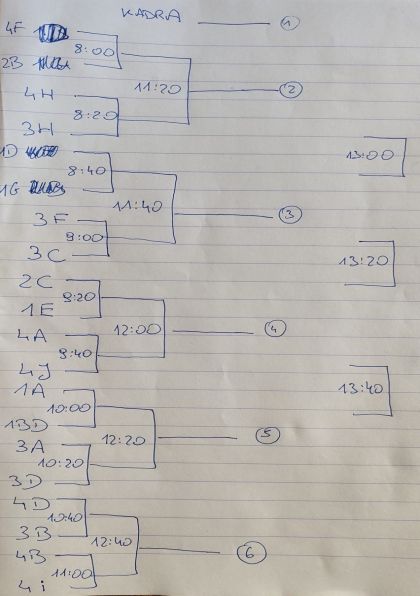 KADRA 1
4F
8:00
2B
11:20 2
4H
8:20
3H
1D
13:00
8:40
1G
11:40 3
3F
9:00
3C
13:20
2C
9:20
1E
12:00 4
4A
9:40
4J
1A
13:40
10:00
1BD
12:20 5
3A
10:20
3D
4D
10:40
3B
12:40 6
4B
11:00
4i